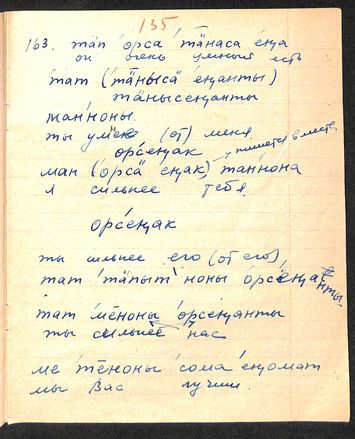 135
163. тӓп орса тӓнаса еӊа
он очень умный есть
тат (тӓныса еӊанты)
тӓнысеӊанты
танноны.
ты умнее (от) меня
орсеӊак
пишется вместе
ман (орсӓ еӊак) таннона
я сильнее тебя.
орсеӊак
ты сильнее его (от его)
тат тӓпыт ноны орсеӊанты.
тат мёноны орсеӊанты
ты сильнее нас
ме тёноны сома еӊомат
мы вас лучше.